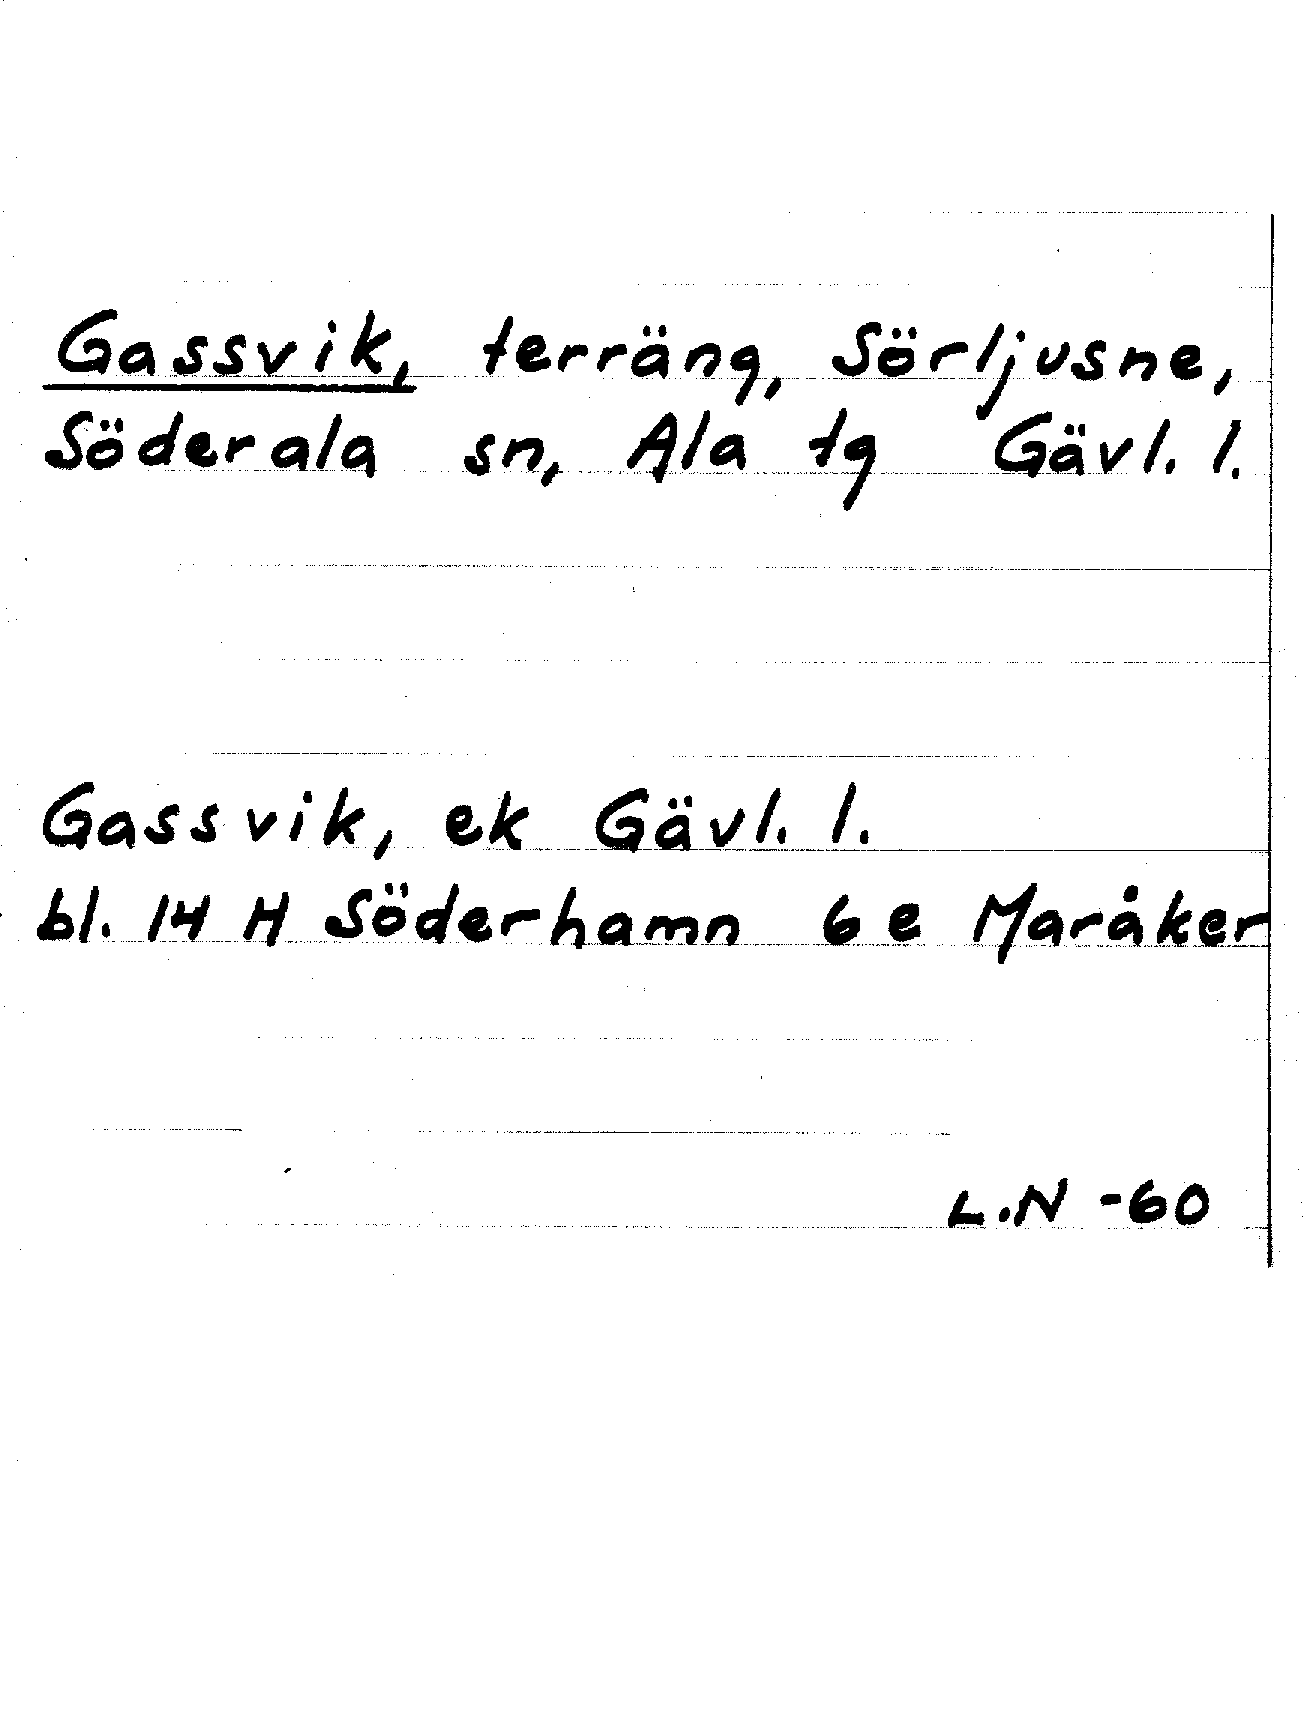 Gassvik, terräng, Sörljusne,
Söderala sn, Ala tg Gävl. l.
Gassvik, ek Gävl. l.
bl. 14 H Söderhamn 6 e Maråker
L.N -60